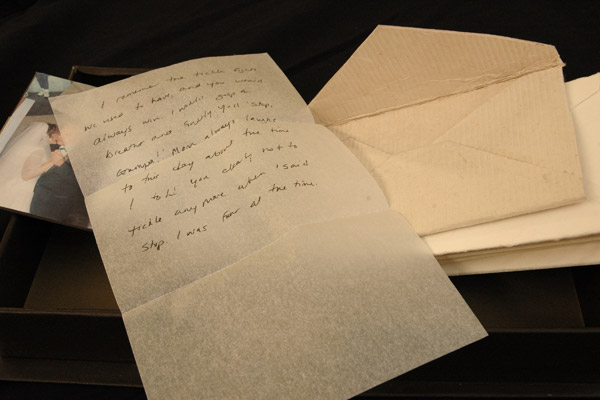 I remember the tickle fights
we used to have, and you would
always win. I would stop &
breathe and finally yell stop,
Grandpa! Mom always laughs
to this day about the time
I told you clearly not to
tickle any more when I said
stop. I was four at the time.